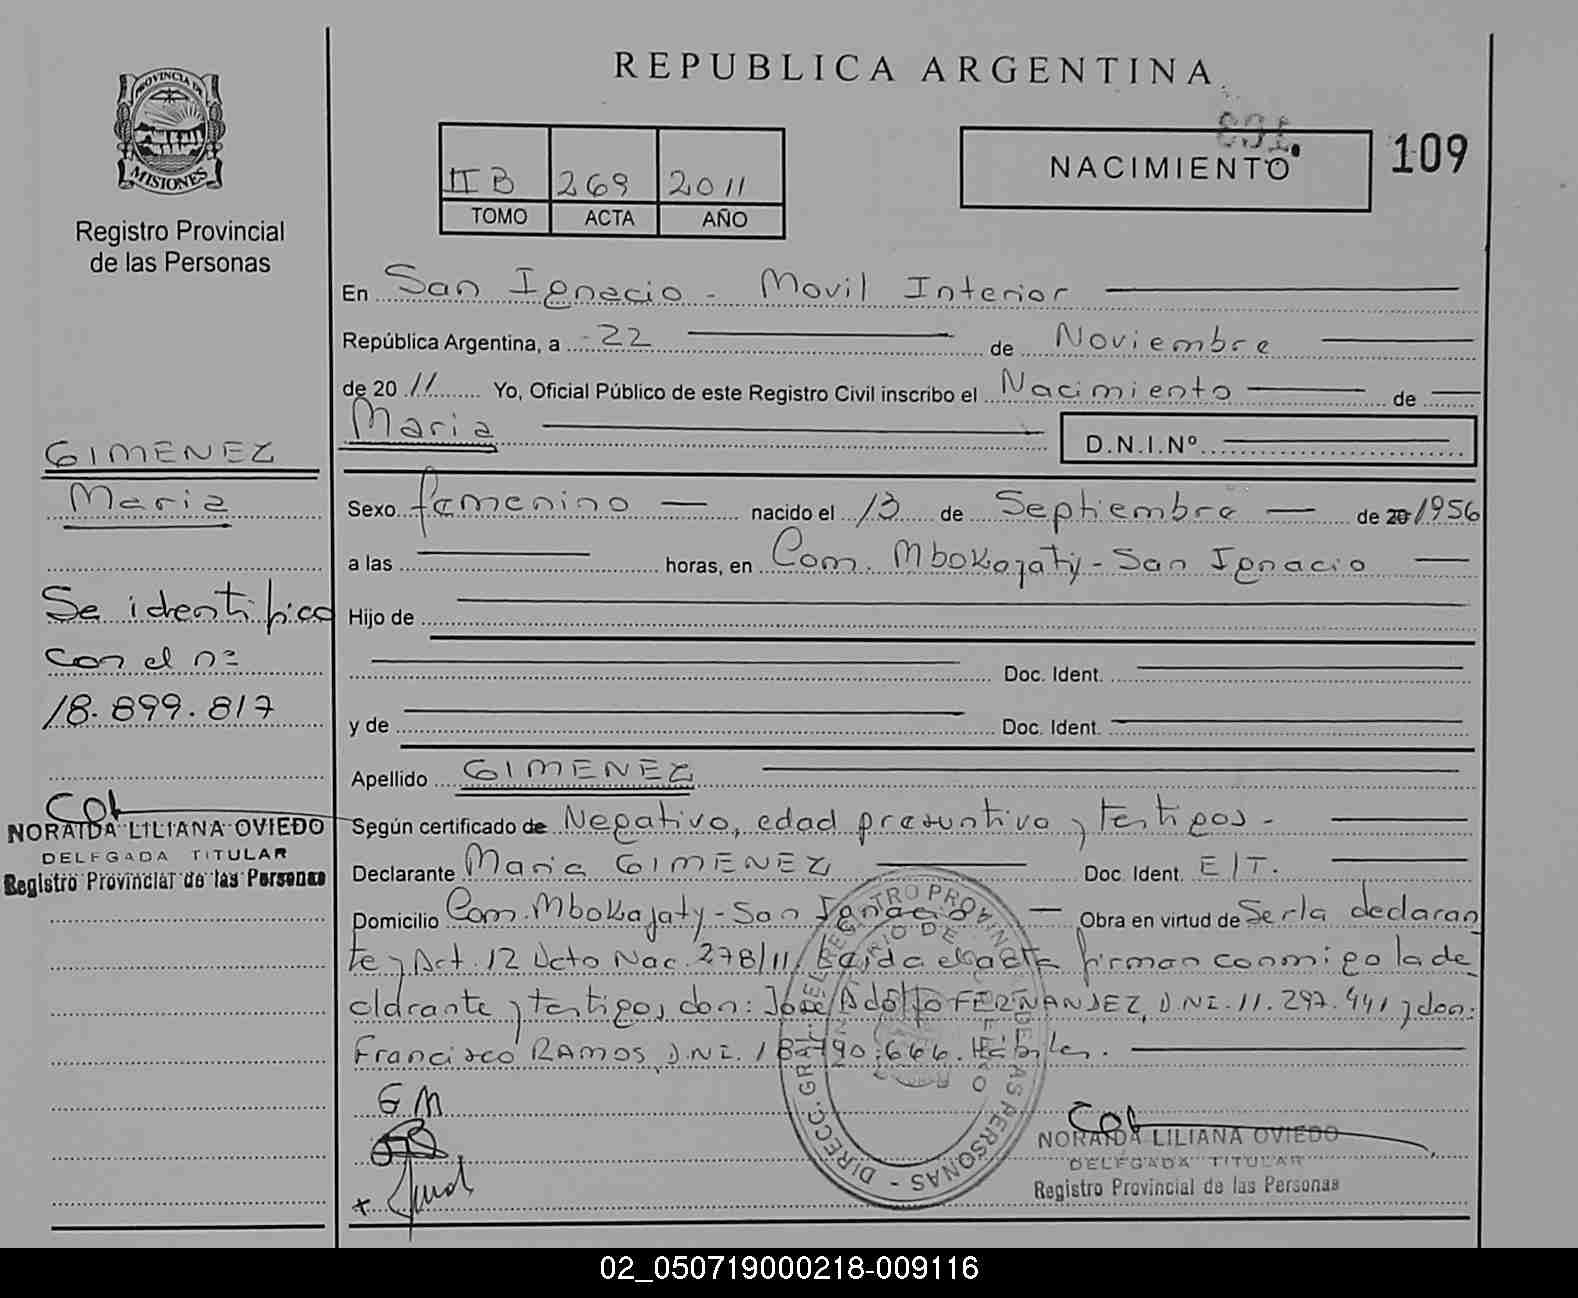 REPUBLICA ARGENTINA
PROVINCIA DE
MISIONES
Registro Provincial
de las Personas
II B 269 2011
TOMO ACTA AÑO
NACIMIENTO
109
En San Ignacio - Movil Interior
República Argentina, a 22 de Noviembre
de 20 11 Yo, Oficial Público de este Registro Civil inscribo el Nacimiento de
Maria D.N.I.Nº
Sexo femenino nacido el 13 de Septiembre de 20 1956
a las horas, en Com. Mbokajaty - San Ignacio
Hijo de
Doc. Ident.
y de Doc. Ident.
Apellido GIMENEZ
Según certificado de Negativo, edad presuntiva y testigos -
Declarante Maria GIMENEZ Doc. Ident. E/T.
Domicilio Com. Mbokajaty - San Ignacio Obra en virtud de Ser la declaran
te y Art. 12 Dcto Nac. 278/11. Leida el acta firman conmigo la de
clarante y testigos don: José Adolfo FERNANDEZ, D.N.I. 11.297.441 y don:
Francisco RAMOS, D.N.I. 18.790.666. Hábiles.
GM
NORAIDA LILIANA OVIEDO
DELEGADA TITULAR
Registro Provincial de las Personas
GIMENEZ
Maria
Se identifico
con el nº
18.899.817
NORAIDA LILIANA OVIEDO
DELEGADA TITULAR
Registro Provincial de las Personas
02_050719000218-009116